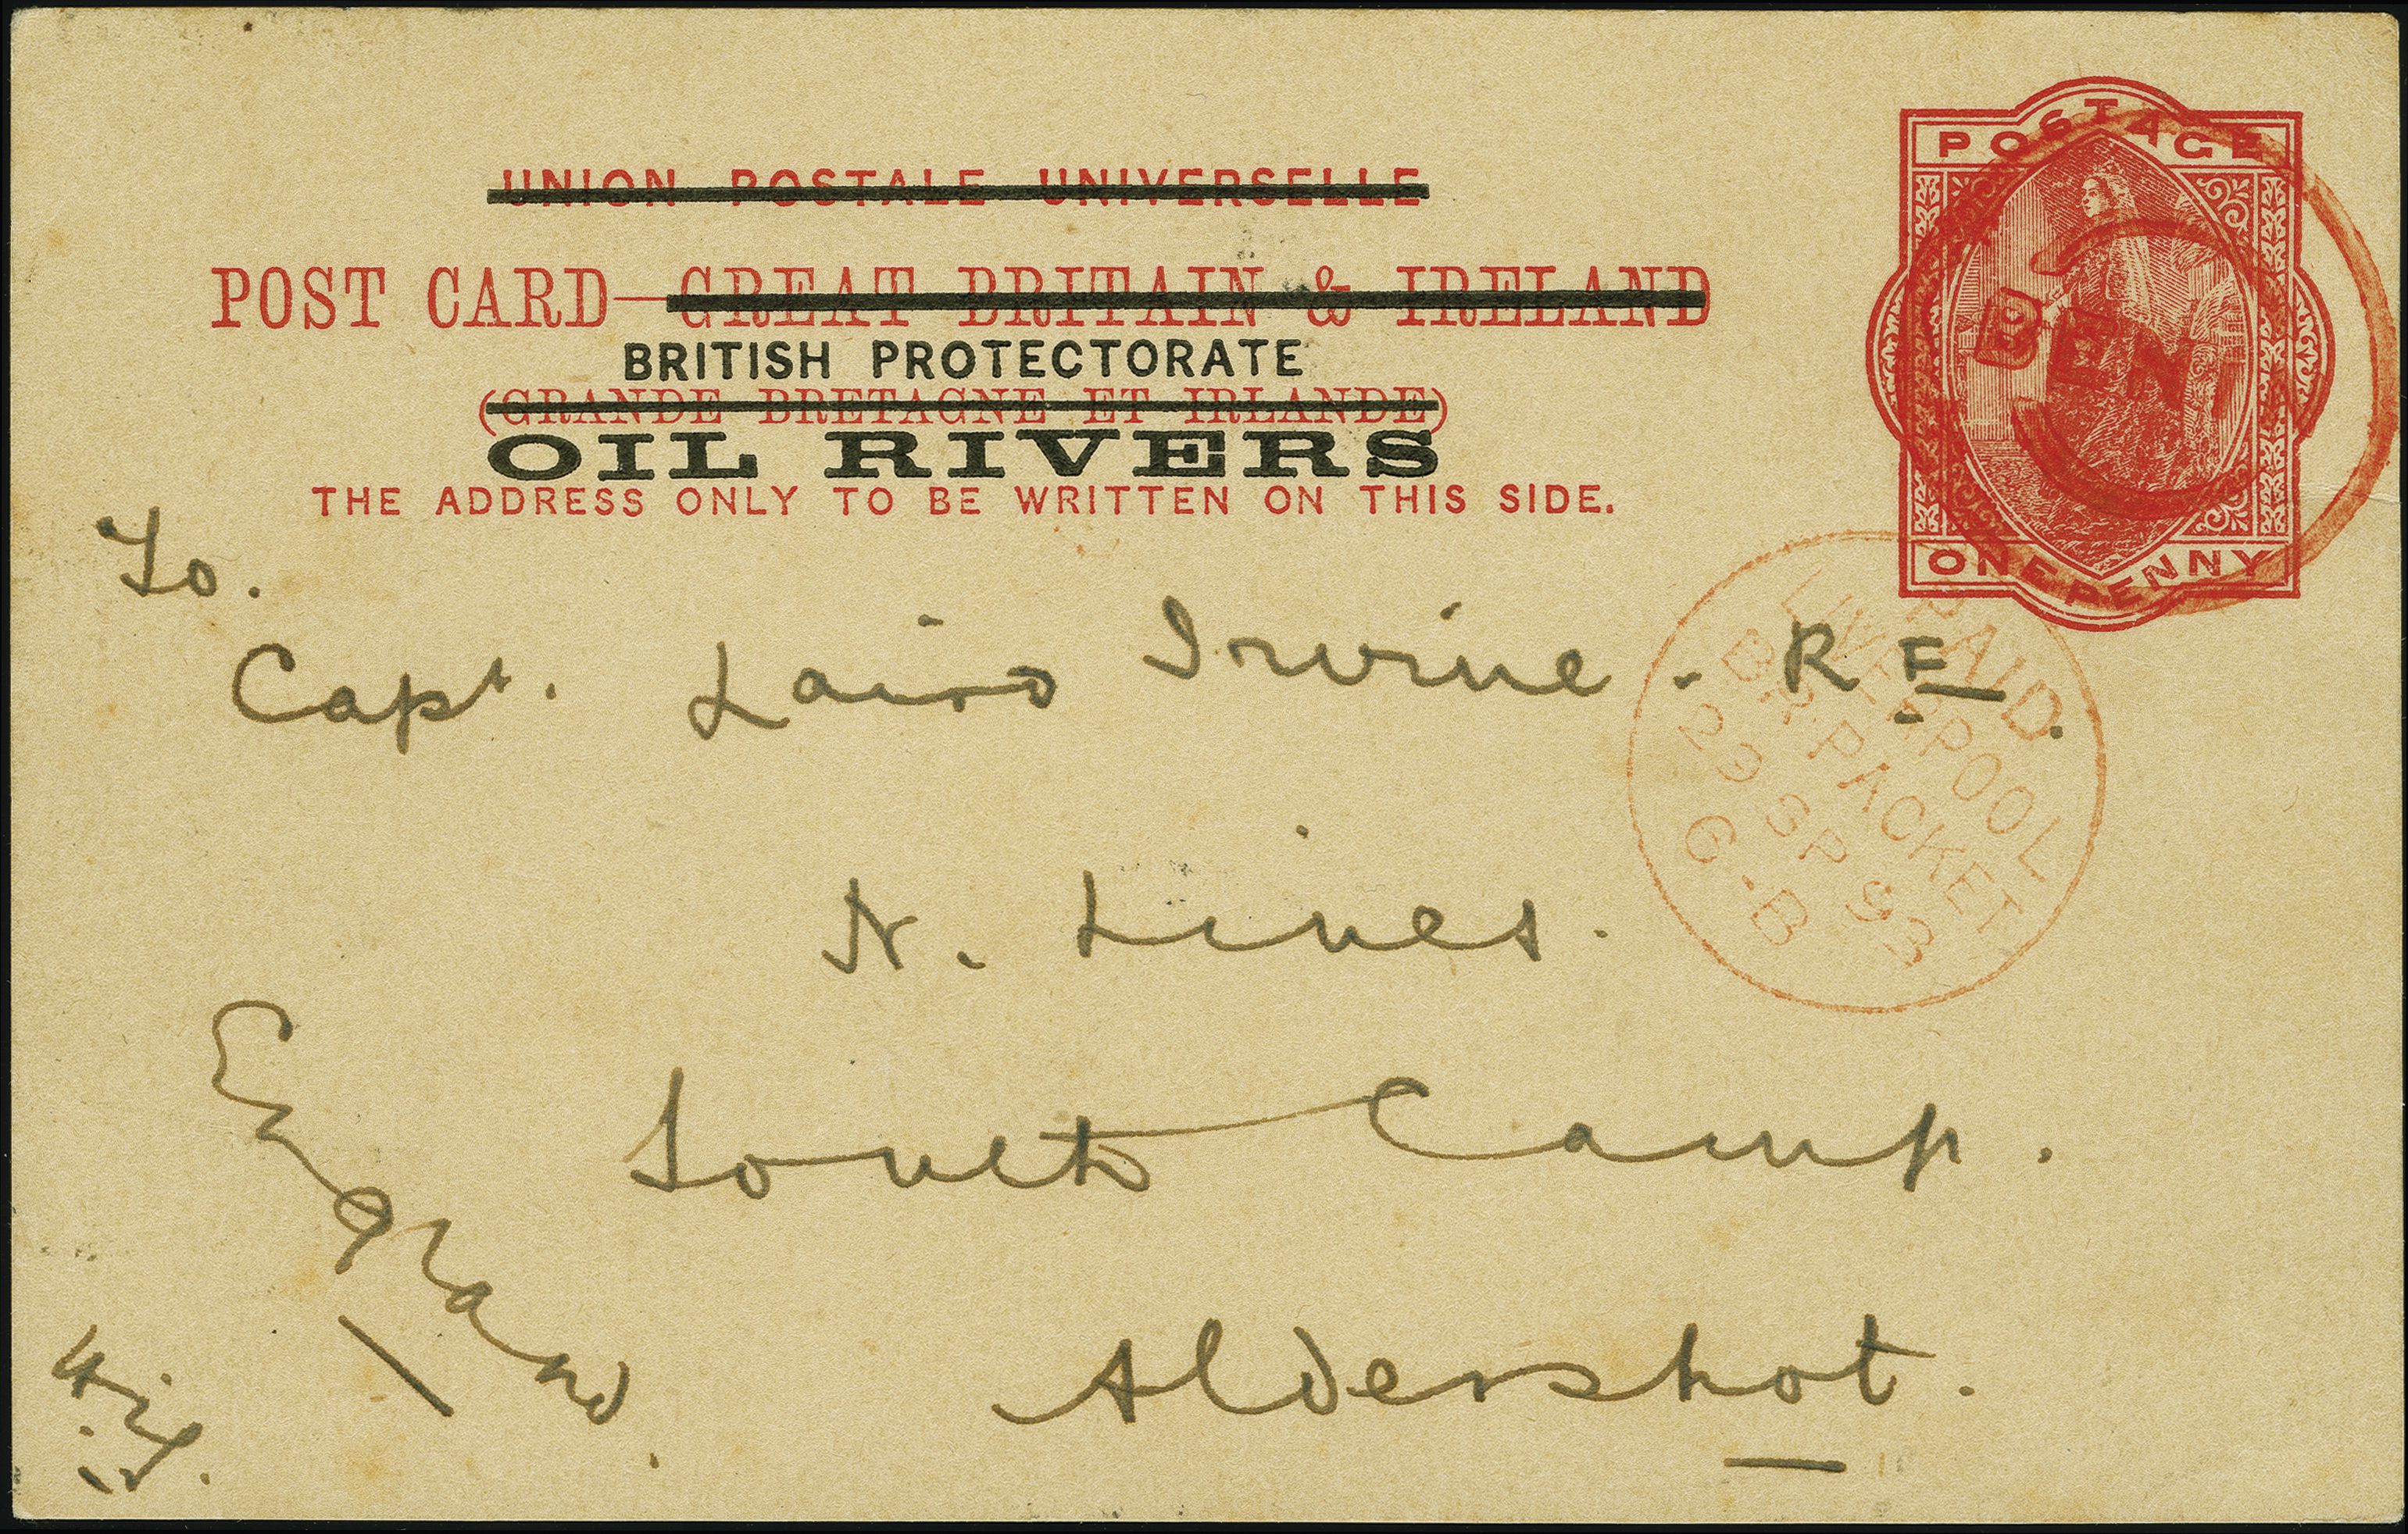 UNION POSTALE UNIVERSELLE
POST CARD—GREAT BRITAIN & IRELAND
BRITISH PROTECTORATE
(GRANDE BRETAGNE ET IRLANDE)
OIL RIVERS
THE ADDRESS ONLY TO BE WRITTEN ON THIS SIDE.
POSTAGE
ONE PENNY
BENI
PAID
LIVERPOOL
BR. PACKET
29 SP 93
6-B
To.
Capt. Laird Irvine. R E.
N. Lines.
South Camp.
Aldershot.
England.